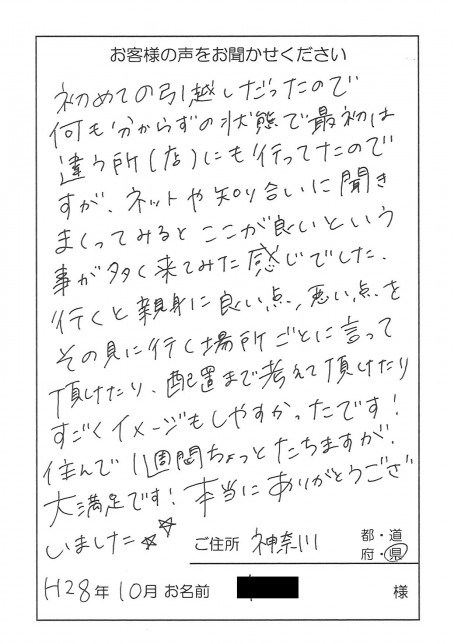 お客様の声をお聞かせください
初めての引越しだったので
何も分からずの状態で最初は
違う所(店)にも行ってたので
すが、ネットや知り合いに聞き
まくってみるとここが良いという
事が多く来てみた感じでした.
行くと親身に良い点、悪い点を
その見に行く場所ごとに言って
頂けたり、配置まで考えて頂けたり
すごくイメージもしやすかったです!
住んで1週間ちょっとたちますが、
大満足です! 本当にありがとうござ
いました☆☆
ご住所 神奈川 都・道府・県
H28年10月 お名前 様